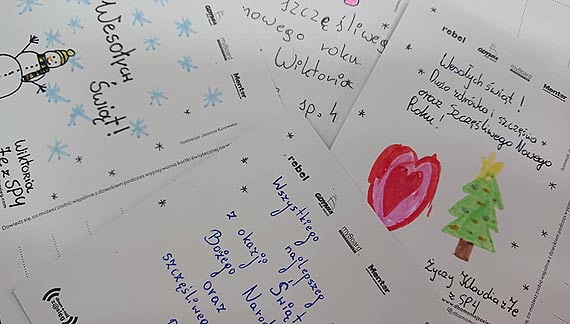 Wesołych
Świąt!
Wiktoria
7e z SP4
Ilustracja: Joanna Kurowska
Dowiedz się, co możesz zrobić wspólnie z dzieckiem podczas wypisywania kartki świątecznej na
rebel
GDYNIA
myBoard
Mentor
szczęśliwego
nowego roku
Wiktoria
sp. 4
rebel
GDYNIA
myBoard
Mentor
Wesołych świąt!
Dużo zdrówka i szczęścia
oraz Szczęśliwego Nowego
Roku!
Życzy Klaudia z 7e
z SP4
rebel
GDYNIA
myBoard
Mentor
Wszystkiego
najlepszego
z okazji Świąt
Bożego Narod
oraz
szczęśliwego